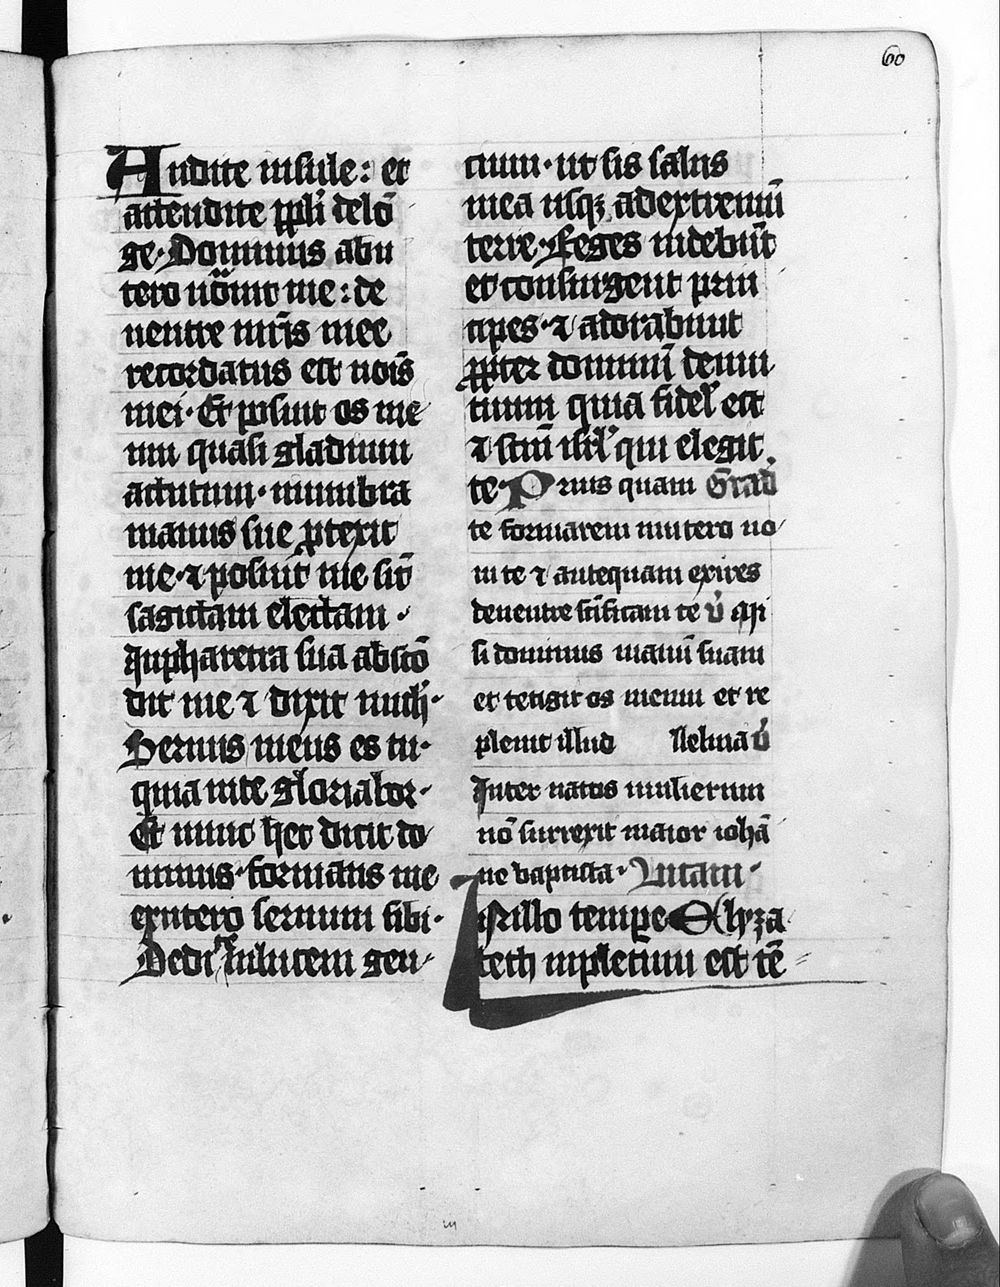 60
Audite insule: et
attendite ppli delō
ge. Dominus abu
tero vōuit me: de
ventre mr̄is mee
recordatus est nōis
mei. Et posuit os me
um quasi gladium
acutum. in umbra
manus sue ptexit
me. ⁊ posuit me sic̄
sagittam electam.
In pharetra sua abscō
dit me ⁊ dixit mich.
Seruus meus es tu.
quia in te gloriabor.
Et nunc hec dicit do
minus. formans me
ex utero seruum sibi.
Dedi te in lucem gen
cium. ut sis salus
mea usqꝫ ad extremū
terre. Reges videbūt
et consurgent prin
cipes. ⁊ adorabunt
ppter dominū deum
tuum quia fidel' est
⁊ scm̄ isrl' qui elegit
te. Prius quam Grad̄
te formarem in utero no
ui te ⁊ antequam exires
de ventre scīficaui te v̄ Mi
si dominus manū suam
et tetigit os meum et re
pleuit illud Alleluia v̄
Inter natos mulierum
nō surrexit maior iohā
ne baptista. Lucam.
In illo tempe Elyza
beth inpletum est tē